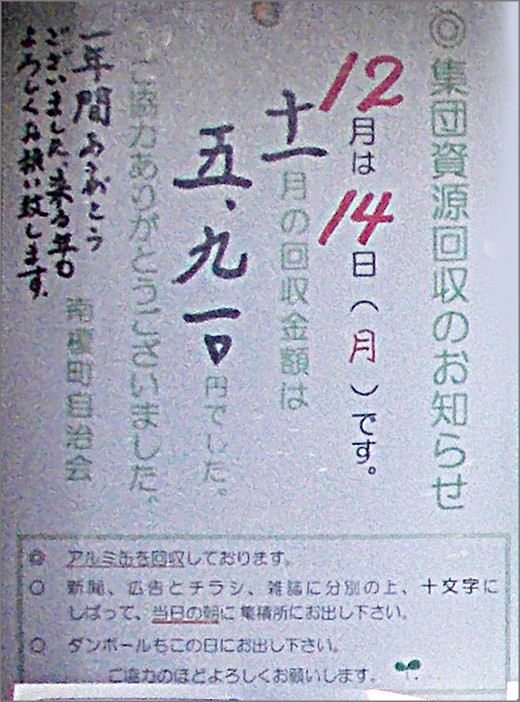 ◎集団資源回収のお知らせ
12月は14日(月)です。
十一月の回収金額は
五、九一〇円でした。
ご協力ありがとうございました。
一年間ありがとう
ございました来る年も
よろしくお願い致します。
町自治会
◎ アルミ缶を回収しております。
○ 新聞、広告とチラシ、雑誌に分別の上、十文字に
しばって、当日の朝に集積所にお出し下さい。
○ ダンボールもこの日にお出し下さい。
ご協力のほどよろしくお願いします。